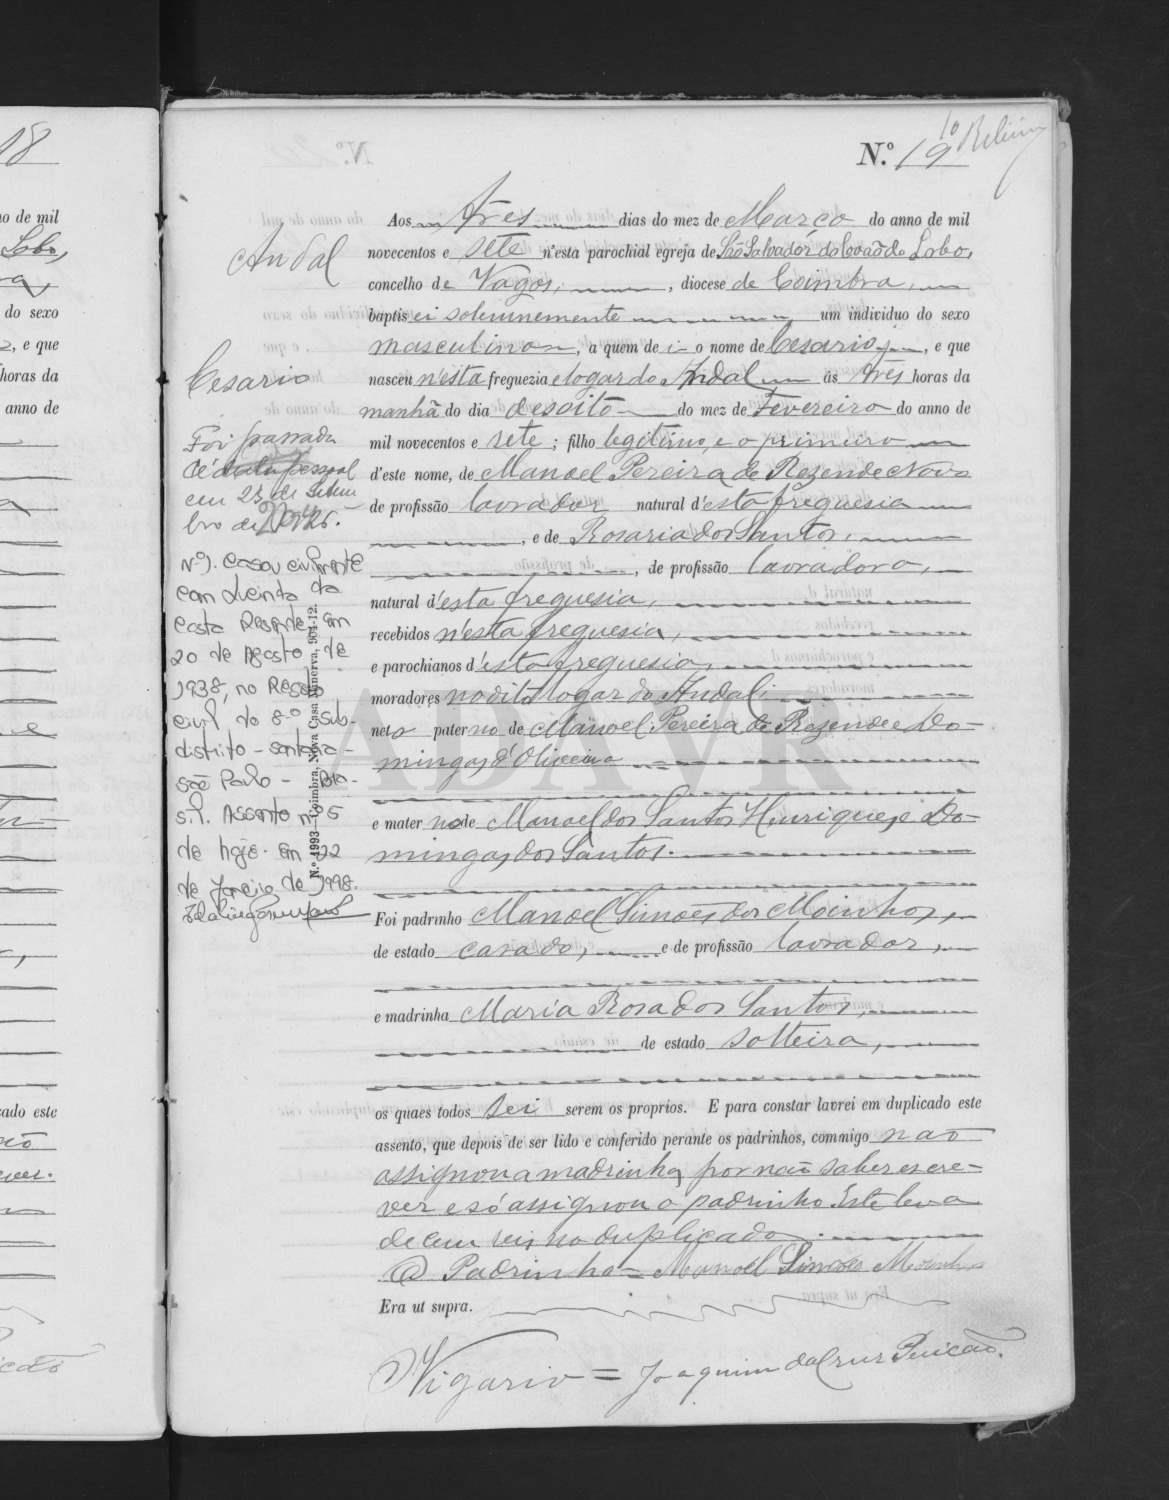 18
N.º 19
Andal
Cesario
Foi passada
cédula pessoal
em 23 de Setem
bro de
Nº 1. Casou civilmente
com Lucinda da
Costa Resende, em
20 de Agosto de
1938, no Registo
Civil do 8º Sub-
distrito - Santana -
São Paulo - Bra-
sil. Assento nº 5
de hoje. Em 22
de Janeiro de 1998.
N.º 1993—Coimbra, Nova Casa Minerva, 904-12.
Aos tres dias do mez de Março do anno de mil
novecentos e sete n'esta parochial egreja de São Salvador do Covão do Lobo,
concelho de Vagos, diocese de Coimbra,
baptisei solemnemente um individuo do sexo
masculino, a quem dei o nome de Cesario, e que
nasceu n'esta freguezia e logar do Andal ás tres horas da
manhã do dia desoito do mez de Fevereiro do anno de
mil novecentos e sete; filho legitimo, e o primeiro
d'este nome, de Manoel Pereira de Rezende Novo
de profissão lavrador natural d'esta freguesia
, e de Rosaria dos Santos,
, de profissão lavradora,
natural d'esta freguesia,
recebidos n'esta freguesia,
e parochianos d'esta freguesia,
moradores no dito logar do Andal;
neto paterno de Manoel Pereira de Rezende e Do-
mingas d'Oliveira
e materno de Manoel dos Santos Henriques, e Do-
mingas dos Santos.
Foi padrinho Manoel Simões dos Moinhos,
de estado casado, e de profissão lavrador,
e madrinha Maria Rosa dos Santos,
de estado solteira,
os quaes todos sei serem os proprios. E para constar lavrei em duplicado este
assento, que depois de ser lido e conferido perante os padrinhos, commigo não
assignou a madrinha, por não saber escre-
ver e só assignou o padrinho. Este leva
de cem reis no duplicado.
O Padrinho = Manoel Simões Moinhos
Era ut supra.
O Vigario = Joaquim da Cruz